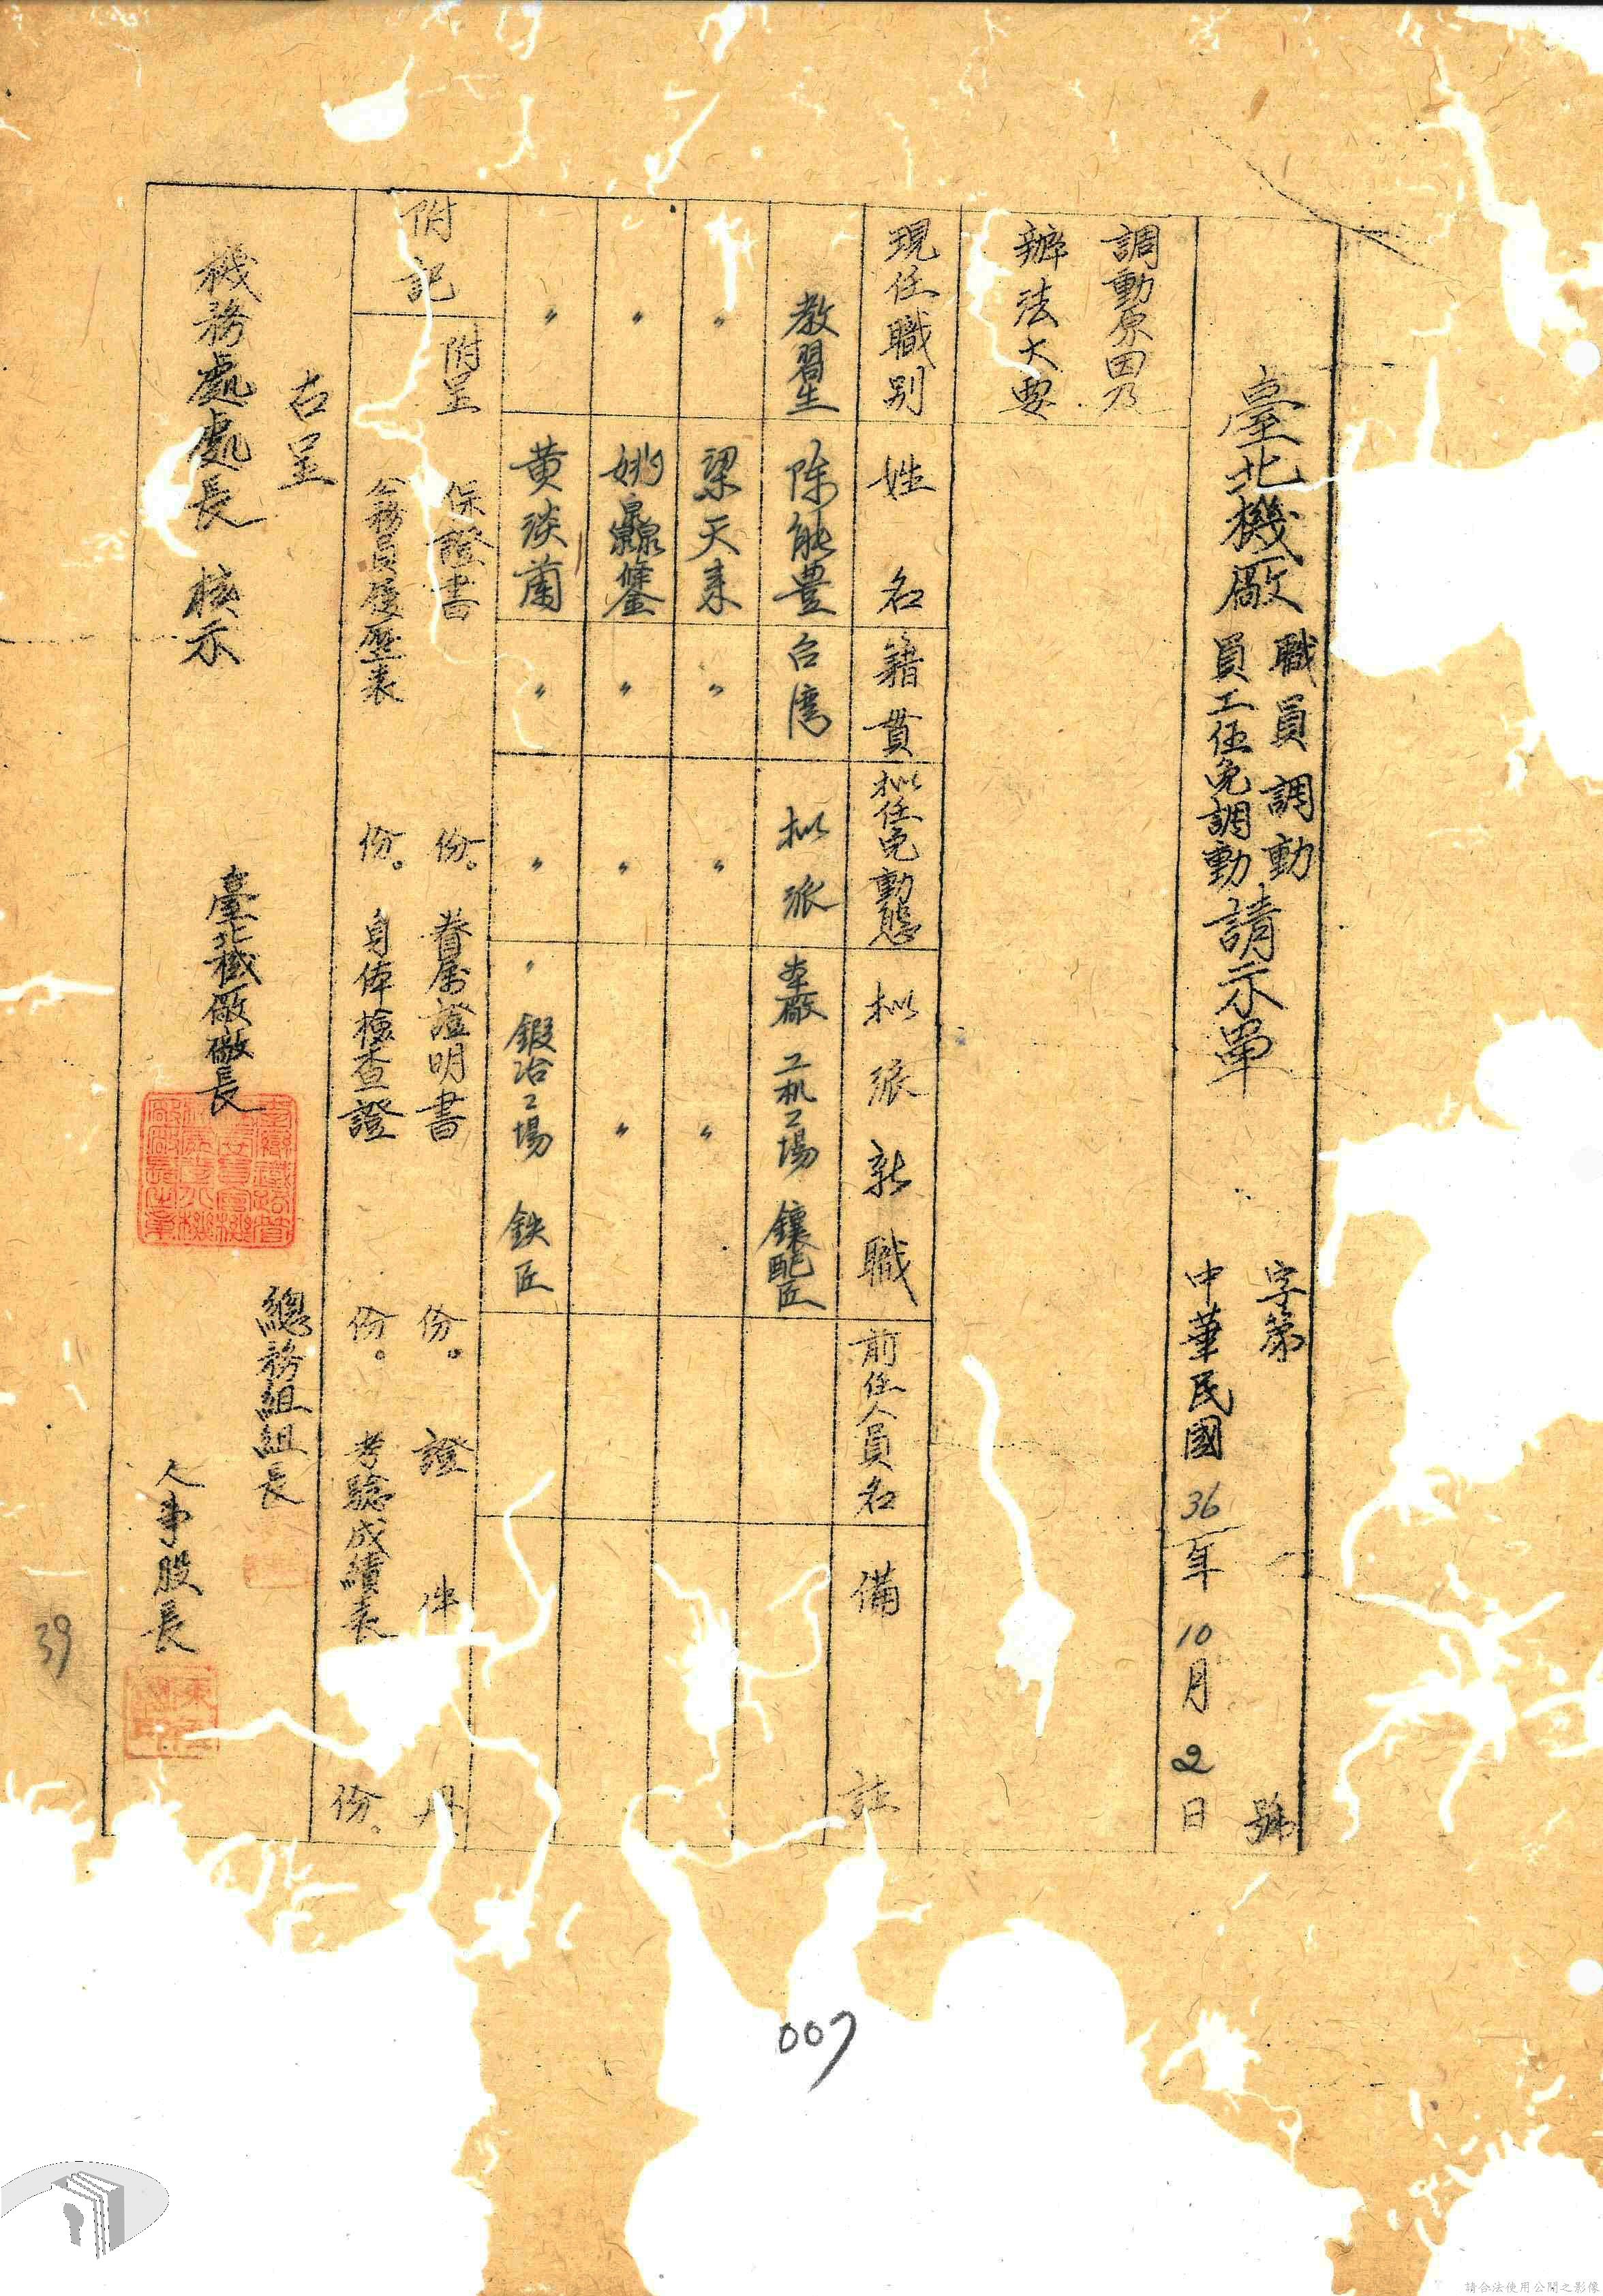 臺北機廠
職員調動
員工任免調動
請示單
字第 號
中華民國36年10月2日
調動原因及
辦法大要
現任職別 姓名 籍貫 拟任免動態 拟派新職 前任人員名 備註
教習生 陈能豊 台湾 拟派 本廠 工机工場 鑲配匠
〃 梁天来 〃 〃 〃
〃 姚 鎏 〃 〃 〃
〃 黄淡蘭 〃 〃 〃 鍛冶工場 鉄匠
附記
附呈 保證書 份。眷属證明書 份。證件
公務員履歷表 份。身体檢查證 份。考驗成績表 份。
右呈
機務處處長 核示
臺北機廠廠長
總務組組長
人事股長
39
007
請合法使用公開之影像